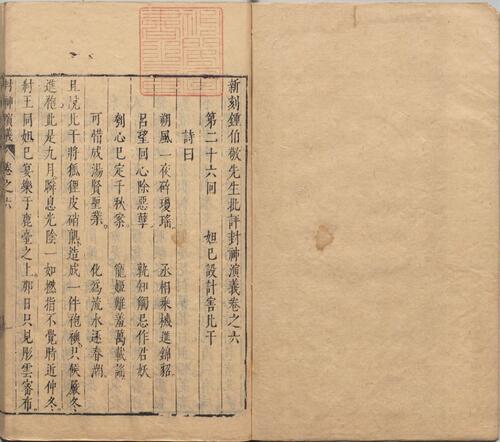 新刻鍾伯敬先生批評封神演義卷之六
第二十六回　妲己設計害比干
詩曰
朔風一夜碎瓊瑤　丞相乘機進錦貂
只望同心除惡孽　孰知觸忌作君妖
刳心已定千秋案　寵妲難羞萬載謠
可惜成湯賢聖業　化為流水逐春潮
且說比干將狐狸皮硝熟造成一件袍襖只候嚴冬
進袍此是九月瞬息光陰一如撚指不覺時近仲冬
紂王同妲己宴樂于鹿臺之上那日只見彤雲密布
封神演義　卷之六